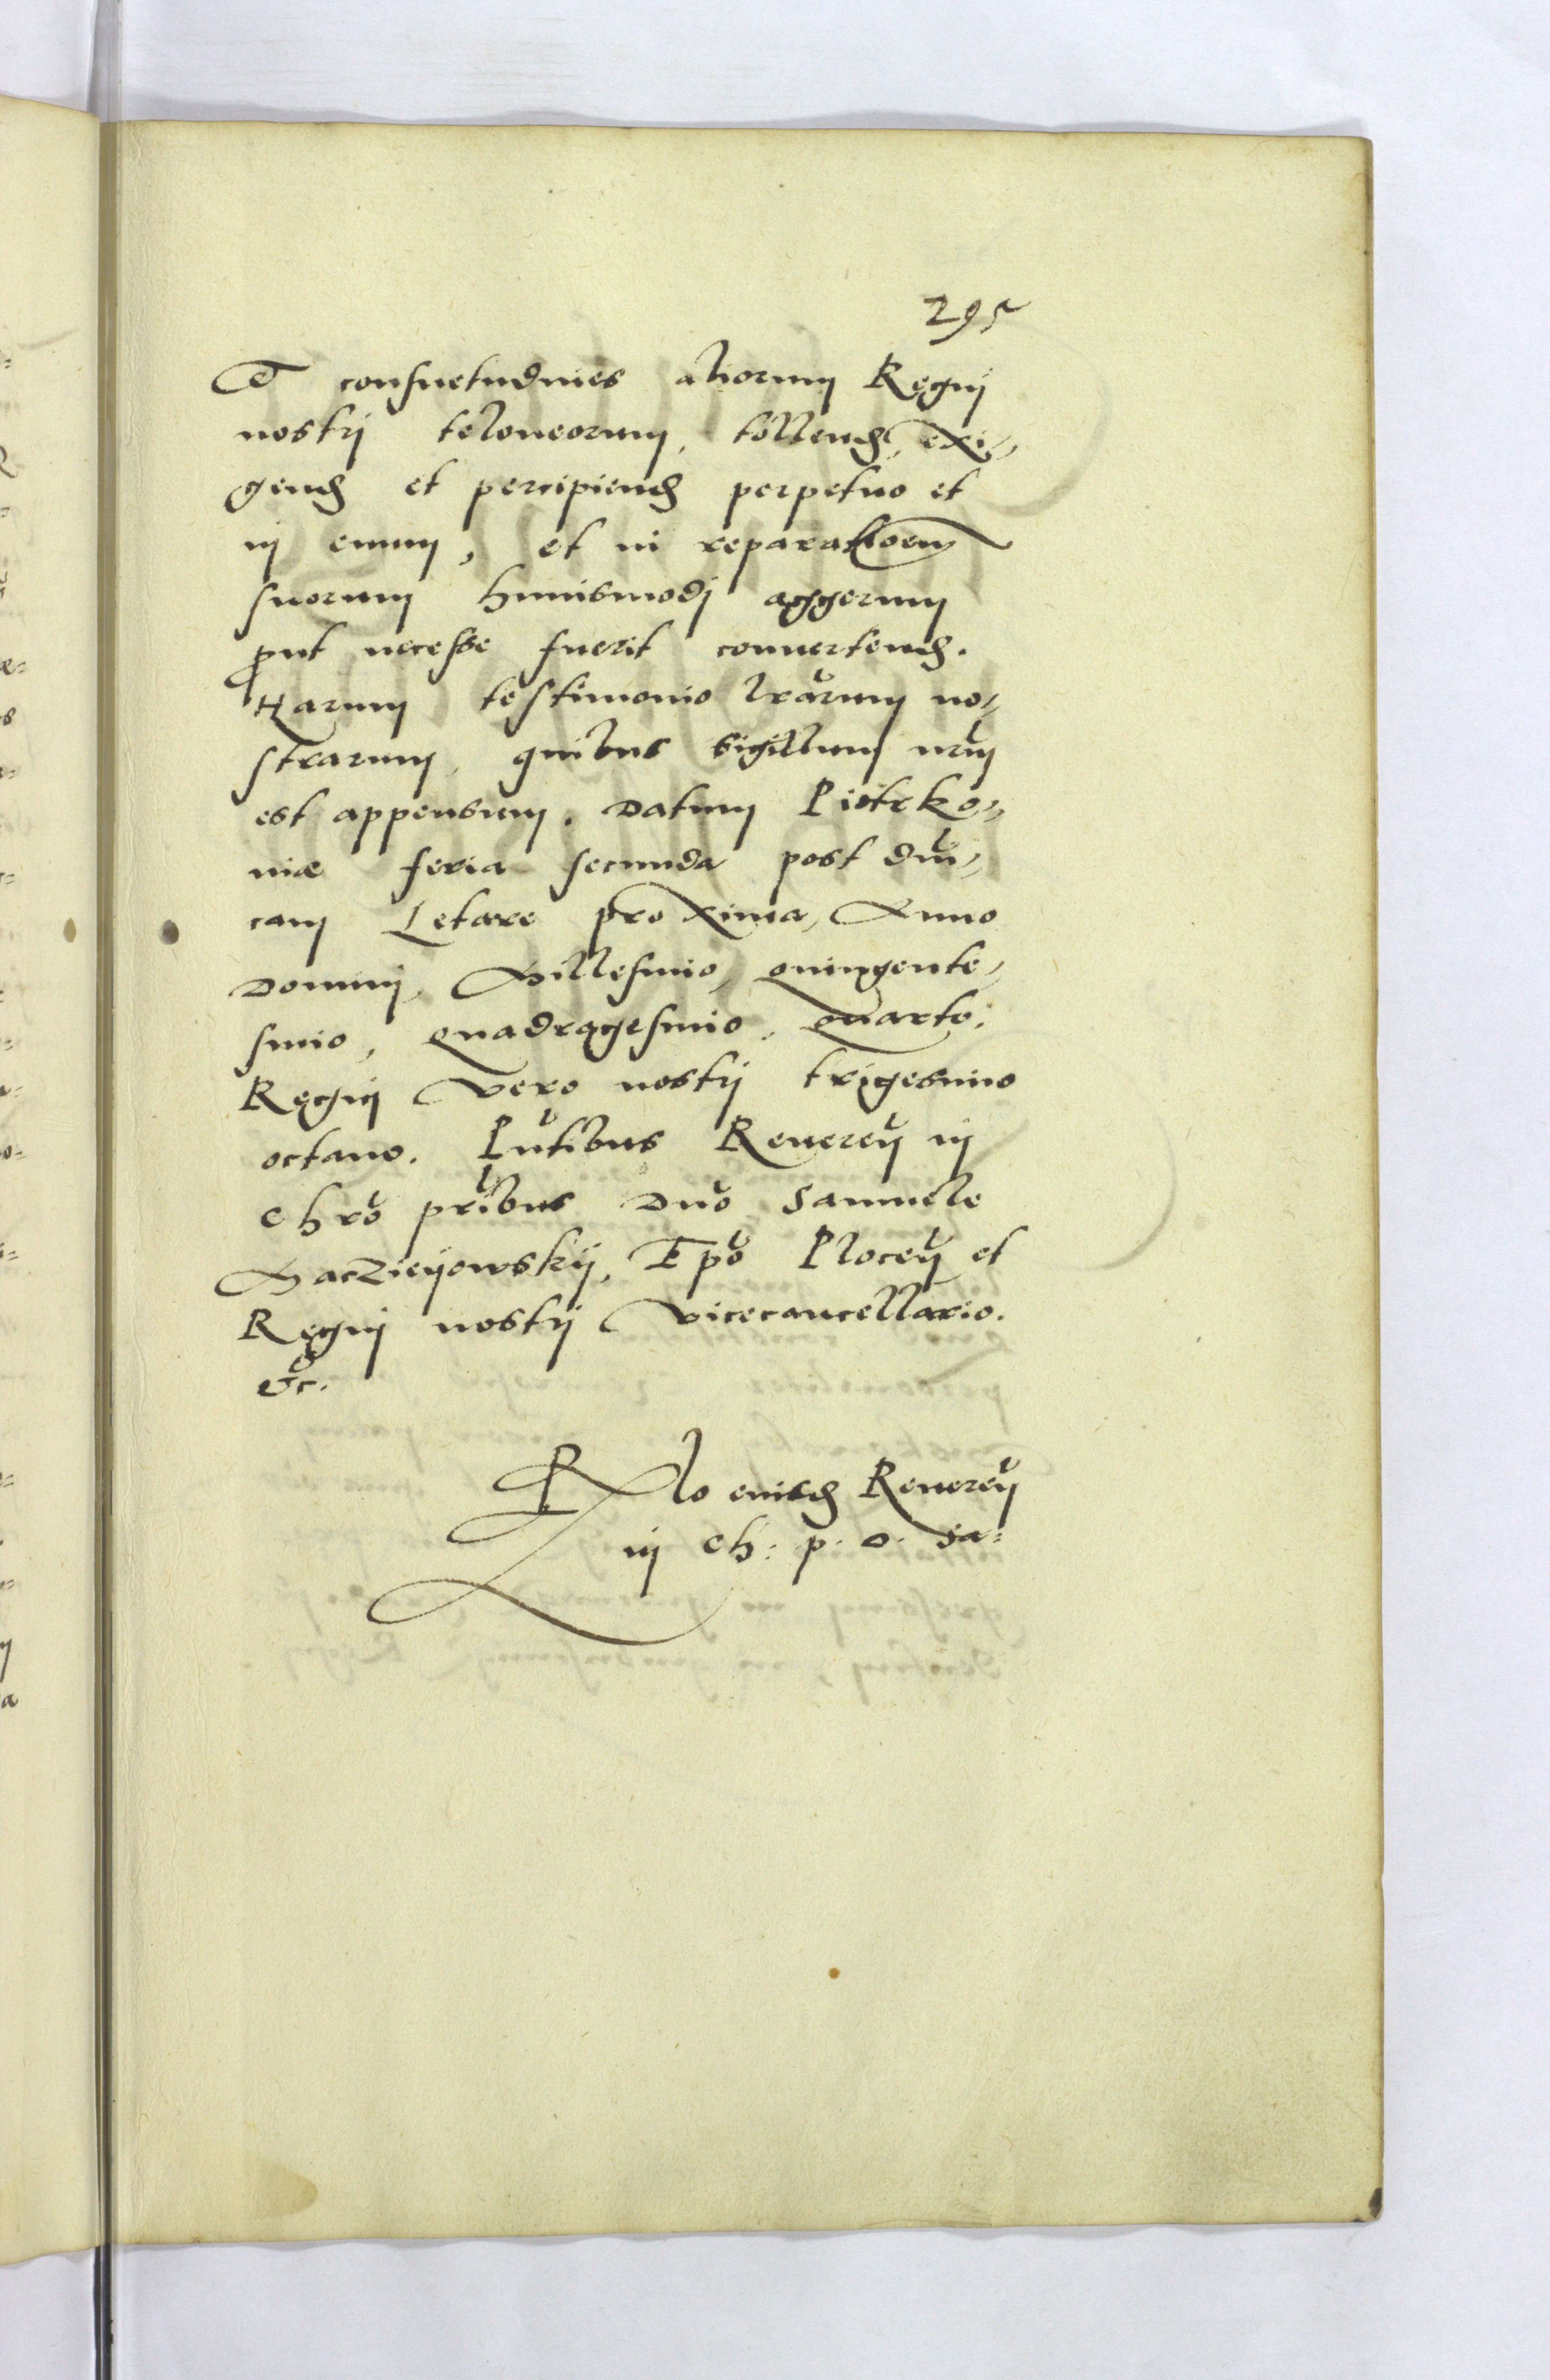 295
Et consuetudines aliorum Regni
nostri teloneorum, tollend, exi-
gend et percipiend perpetuo et
in eum, et in reparationem
suorum huiusmodi aggerum
put necesse fuerit conuertend.
Harum testimonio lrarum no-
strarum, quibus sigillum nrum
est appensum. Datum Piotrko-
uiæ feria secunda post dni-
cam Letare proxima, Anno
Domini, Millesimo, quingente-
simo, quadragesimo, quarto,
Regni Vero nostri trigesimo
octauo. Pntibus Reueren in
Chro pribus Dno Samuele
Maczieyowsky, Epo Plocen et
Regni nostri Vicecancellario.
etc.
Rlo eiusd Reueren
in Ch: p. D. Sa=